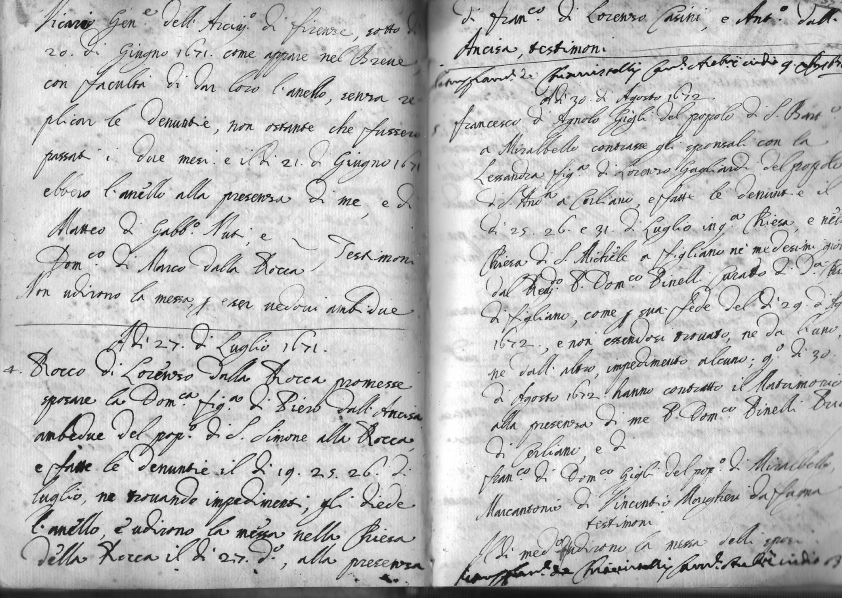 Vicario Gen.e dell'Arciv.o di Firenze, sotto di
20. di Giugno 1671. come appare nel Breve,
con facultà di dar loro l'anello, senza re
plicar le denuntie, non ostante che fussero
passati i due mesi e il dì 21. di Giugno 1671
ebbero l'anello alla presenza di me, e di
Matteo di Gabb.o Nuti, e
Dom.co di Marco dalla Rocca Testimoni
Non udirono la messa, p esser vedovi ambidue
Adi 27. di Luglio 1671.
4. Rocco di Lorenzo dalla Rocca promesse
sposare la Dom.ca fig.a di Piero dall'Ancisa
ambedue del pop.o di S. Simone alla Rocca,
e fatte le denuntie il dì 19. 25. 26. di
luglio, ne trovando impedimenti, gli diede
l'anello, e udirono la messa nella Chiesa
della Rocca il dì 27. d.o, alla presenza
di Fran.co di Lorenzo Casini, e Ant.o dall'
Ancisa, testimoni
Adi 30. di Agosto 1672.
Francesco di Agnolo Gigli del popolo di S.
a Miralbello contrasse gli sponsali con la
Lessandra fig.a di Lorenzo Gagliardi del popolo
di S. a Cerliano, e fatte le denuntie il
dì 25. 26. e 31 di Luglio in q.a Chiesa, e nella
Chiesa di S. Michele a Figliano ne medesimi
dal D. Dom.co Pinelli Curato di d.a
di Figliano, come p sua fede del dì 29. d
1672., e non essendosi trovato, ne da l'uno,
ne dall'altro, impedimento alcuno; q.o dì 30.
di Agosto 1672 hanno contratto il Matrimonio
alla presenza di me D. Dom.co Pinelli
di Cerliano, e di
Fran.co di Dom.co Gigli del pop.o di Miralbello,
Marcantonio di Vincentio da
testimoni
udirono la messa delli sposi